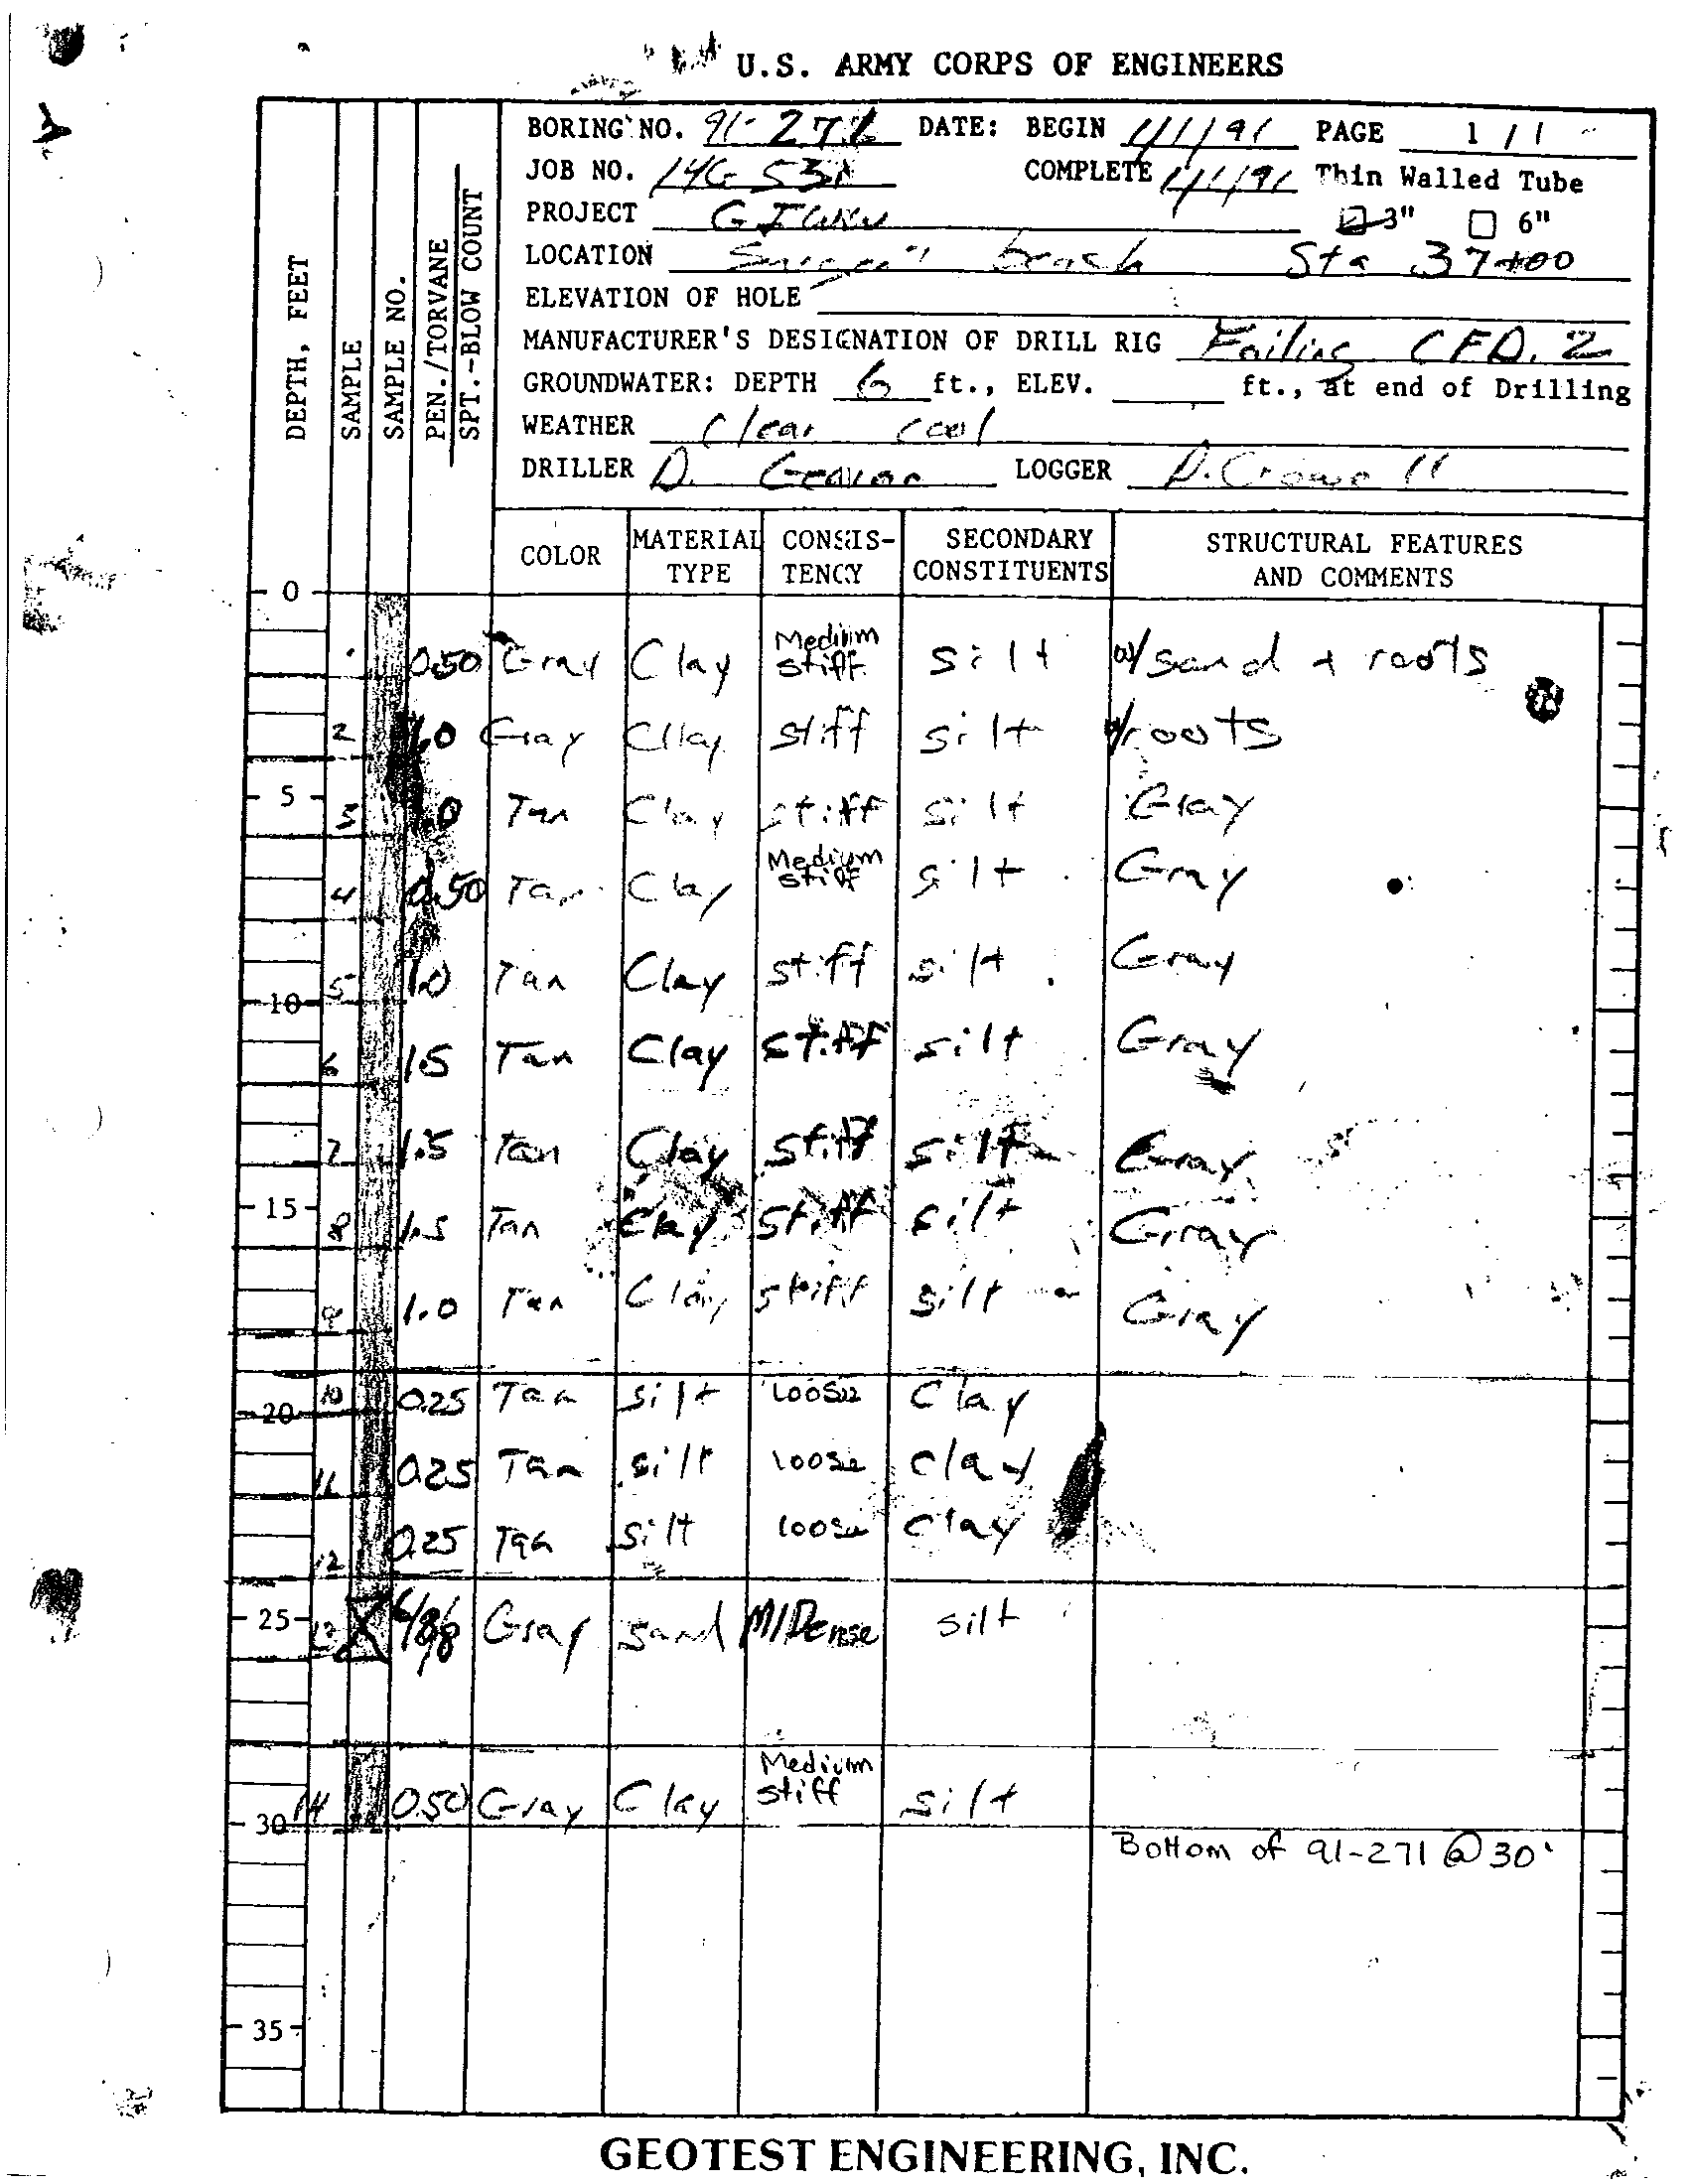 U.S. ARMY CORPS OF ENGINEERS
BORING NO. 91-271 DATE: BEGIN 1/1/91 PAGE 1 / 1
JOB NO. 14G 531 COMPLETE 1/1/91 Thin Walled Tube
PROJECT GIWW 3" 6"
LOCATION beach Sta 37+00
ELEVATION OF HOLE
MANUFACTURER'S DESIGNATION OF DRILL RIG Failing CFD. 2
GROUNDWATER: DEPTH 6 ft., ELEV. ft., at end of Drilling
WEATHER Clear cool
DRILLER D. LOGGER D.
DEPTH, FEET SAMPLE SAMPLE NO. PEN./TORVANE SPT.-BLOW COUNT
COLOR MATERIAL TYPE CONSIS-TENCY SECONDARY CONSTITUENTS STRUCTURAL FEATURES AND COMMENTS
0
0.50 Gray Clay Medium stiff silt w/sand + roots
2 1.0 Gray Cllay stiff silt w/roots
5
3 1.0 Tan Clay stiff silt Gray
4 0.50 Tan Clay Medium stiff silt Gray
5 1.0 Tan Clay stiff silt Gray
10
6 1.5 Tan Clay stiff silt Gray
7 1.5 Tan Clay stiff silt Gray
15
8 1.5 Tan Clay stiff silt Gray
9 1.0 Tan Clay stiff silt Gray
10 0.25 Tan silt loose Clay
20
11 0.25 Tan silt loose clay
12 0.25 Tan silt loose clay
25
13 6/8/8 Gray sand M/Dense silt
14 0.50 Gray Clay Medium stiff silt
30
Bottom of 91-271 @ 30'
35
GEOTEST ENGINEERING, INC.